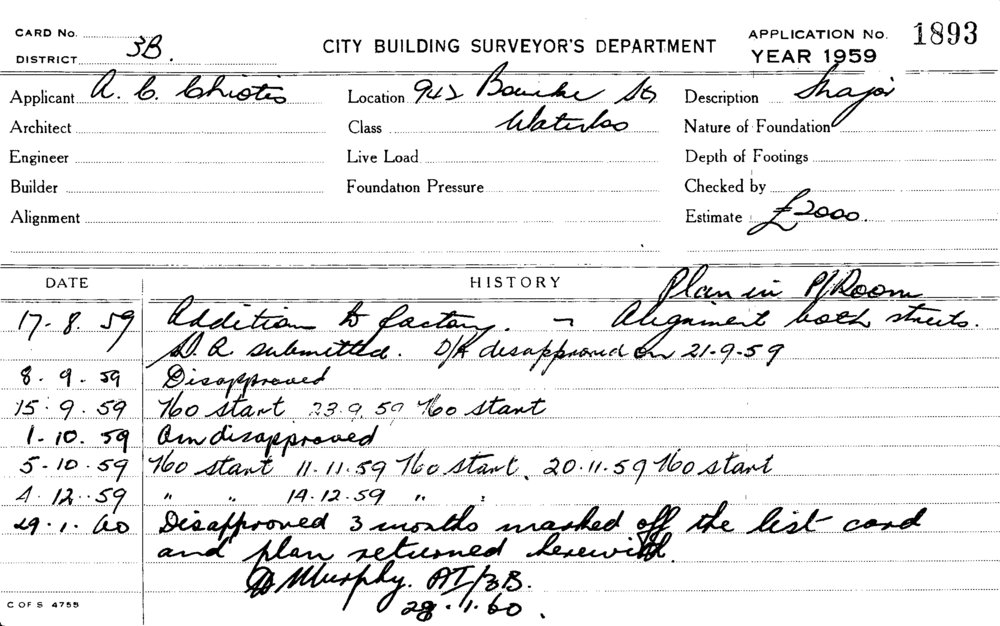 CARD No.
DISTRICT 3B.
CITY BUILDING SURVEYOR'S DEPARTMENT
APPLICATION No. 1893
YEAR 1959
Applicant A. C. Chiotis Location 942 Bourke St Description
Architect Class Waterloo Nature of Foundation
Engineer Live Load Depth of Footings
Builder Foundation Pressure Checked by
Alignment Estimate £2000.
DATE HISTORY Plan in P/Room
17.8.59 Addition to factory. - Alignment both streets.
D.A. submitted. D/A disapproved on 21-9-59
8.9.59 Disapproved
15.9.59 No start 23.9.59 No start
1-10.59 Am disapproved
5-10.59 No start 11-11.59 No start. 20.11.59 No start
4.12.59 " " 14.12.59 " "
29.1.60 Disapproved 3 months marked off the list card
and plan returned herewith.
Murphy. AT/3B.
28.1.60.
C OF S 4755